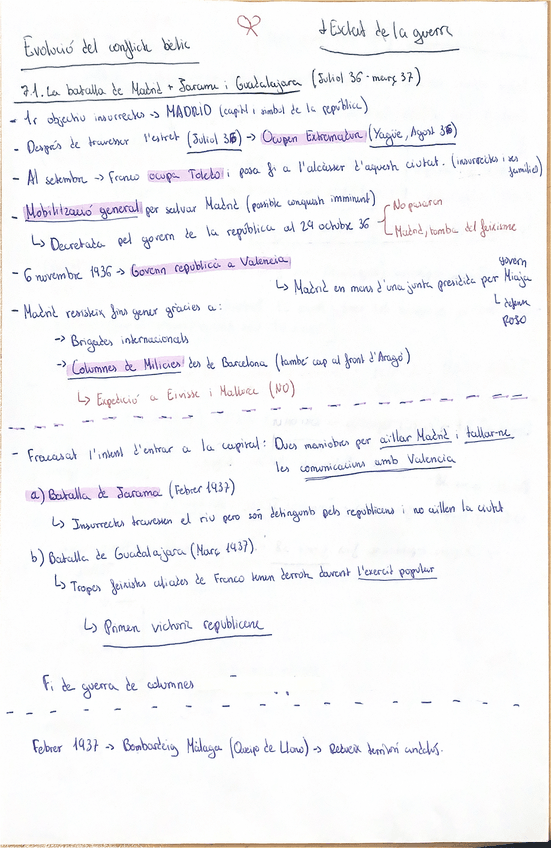 + Esclat de la guerra
Evolució del conflicte bèlic
7.1. La batalla de Madrid + Jarama i Guadalajara (Juliol 36 - març 37)
- 1r objectiu insurrectes -> MADRID (capital i símbol de la república)
- Després de travessar l'estret (Juliol 36) -> Ocupen Extremadura (Yagüe, Agost 36)
- Al setembre -> Franco ocupa Toledo i posa fi a l'alcàsser d'aquesta ciutat. (insurrectes i ses famílies)
- Mobilització general per salvar Madrid (possible conquesta imminent)
↳ Decretada pel govern de la república al 29 octubre 36
No pasaran
Madrid, tomba del feixisme
- 6 novembre 1936 -> Govern republicà a València
↳ Madrid en mans d'una junta presidida per Miaja
govern
↳ defensa
ROJO
- Madrid resisteix fins gener gràcies a:
-> Brigades internacionals
-> Columnes de Milícies des de Barcelona (també cap al front d'Aragó)
↳ Expedició a Eivissa i Mallorca (NO)
- Fracassat l'intent d'entrar a la capital: Dues maniobres per aïllar Madrid i tallar-ne
les comunicacions amb València
a) Batalla de Jarama (Febrer 1937)
↳ Insurrectes travessen el riu però són detinguts pels republicans i no aïllen la ciutat
b) Batalla de Guadalajara (Març 1937)
↳ Tropes feixistes aliades de Franco tenen derrota davant l'exèrcit popular
↳ Primera victòria republicana
Fi de guerra de columnes
Febrer 1937 -> Bombardeig Màlaga (Queipo de Llano) -> Redueix territori andalús.